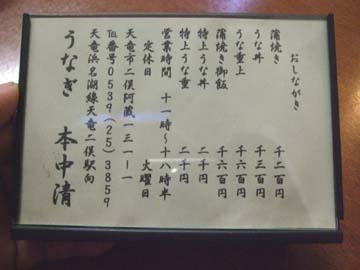 おしながき
蒲焼き 千二百円
うな丼 千三百円
うな重上 千六百円
蒲焼き御飯 千六百円
特上うな丼 二千円
特上うな重 二千円
営業時間 十一時〜十八時半
定休日 火曜日
天竜市二俣阿蔵一三一ー一
℡番号0539(25)3859
天竜浜名湖線天竜二俣駅向
うなぎ 本中清